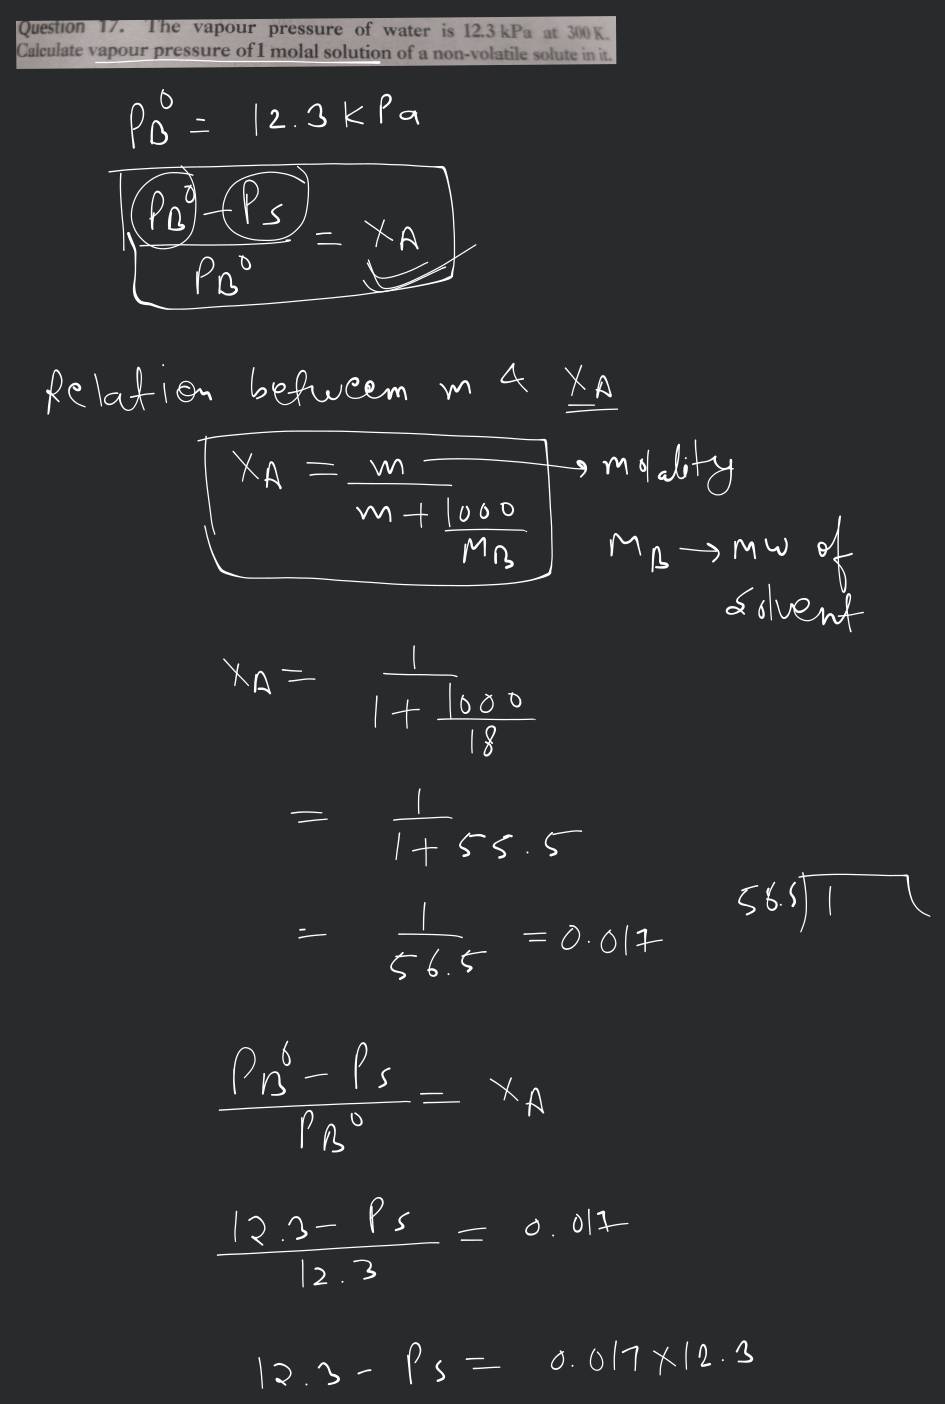 Question 17. The vapour pressure of water is 12.3 kPa at 300 K.
Calculate vapour pressure of 1 molal solution of a non-volatile solute in it.
P_B^0 = 12.3 kPa
(P_B^0 - P_s) / P_B^0 = X_A
Relation between m & X_A
X_A = m / (m + 1000/M_B) → molality
M_B → MW of
solvent
X_A = 1 / (1 + 1000/18)
= 1 / (1 + 55.5)
= 1 / 56.5 = 0.017
56.5) 1
(P_B^0 - P_s) / P_B^0 = X_A
(12.3 - P_s) / 12.3 = 0.017
12.3 - P_s = 0.017 × 12.3